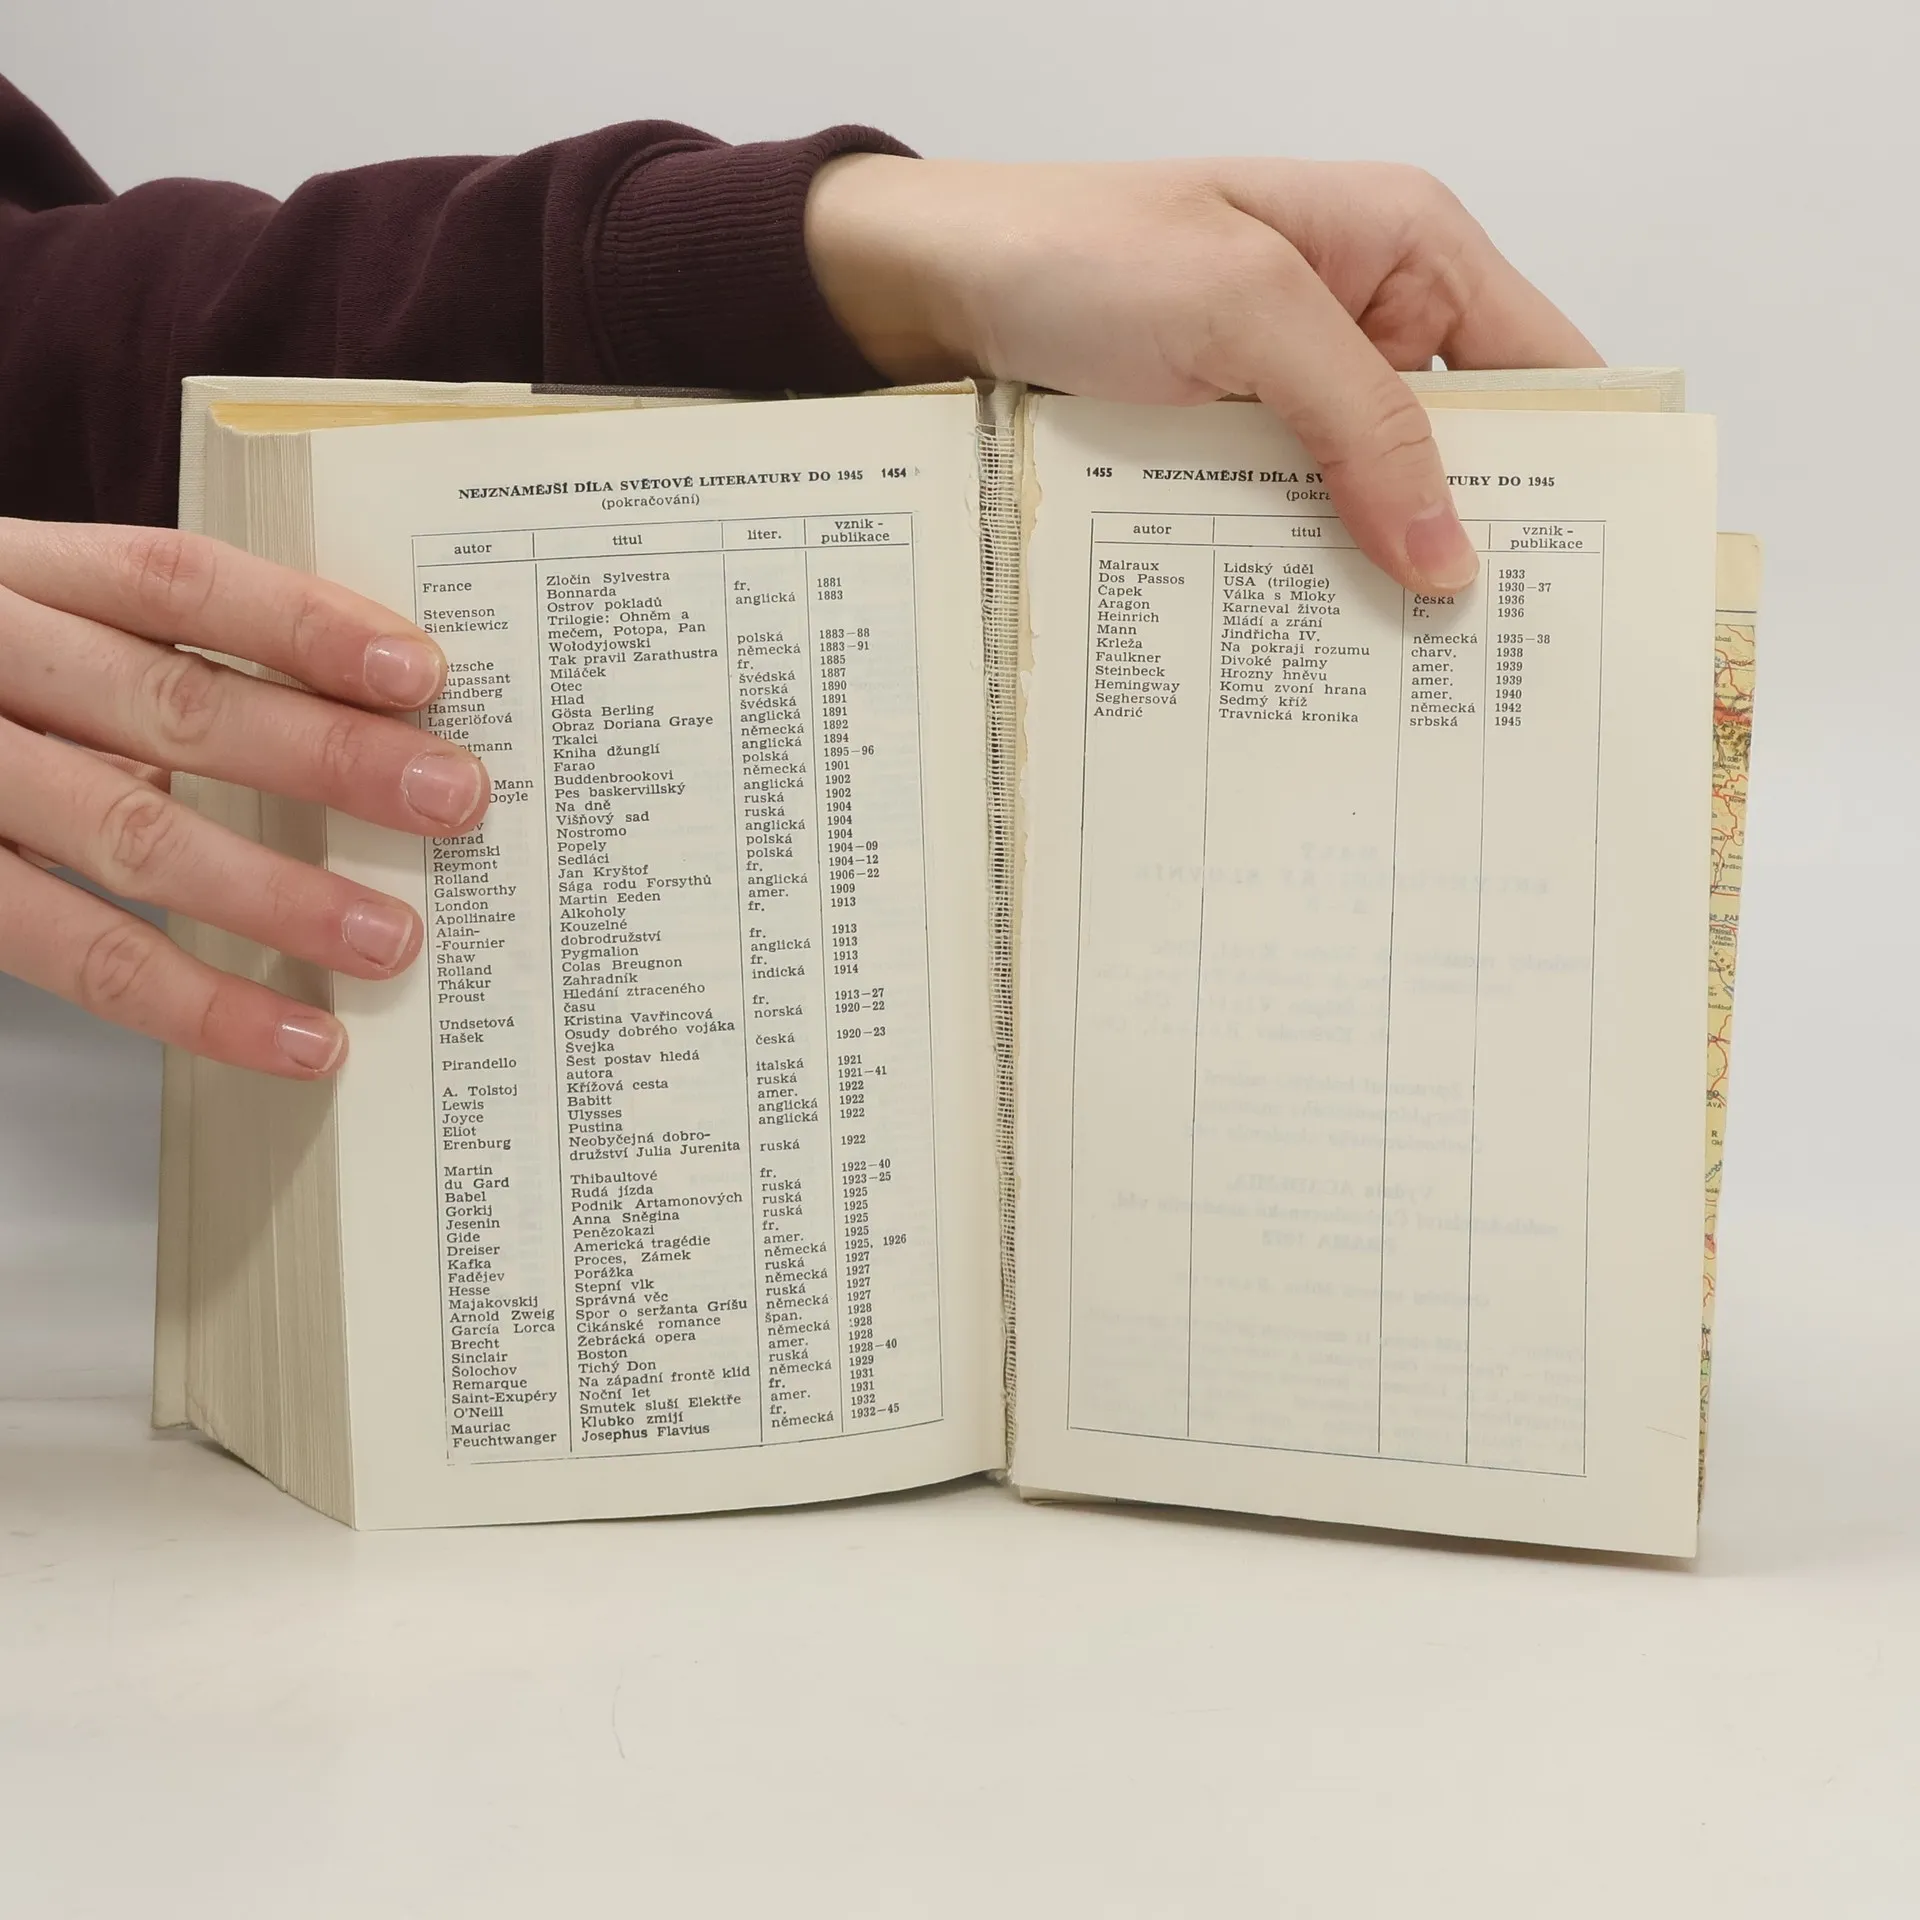 NEJZNÁMĚJŠÍ DÍLA SVĚTOVÉ LITERATURY DO 1945 1454
(pokračování)
autor titul liter. vznik - publikace
France Zločin Sylvestra
Bonnarda fr. 1881
Stevenson Ostrov pokladů anglická 1883
Sienkiewicz Trilogie: Ohněm a
mečem, Potopa, Pan
Wołodyjowski polská 1883–88
etzsche Tak pravil Zarathustra německá 1883–91
upassant Miláček fr. 1885
rindberg Otec švédská 1887
Hamsun Hlad norská 1890
Lagerlöfová Gösta Berling švédská 1891
Wilde Obraz Doriana Graye anglická 1891
ptmann Tkalci německá 1892
Kniha džunglí anglická 1894
Farao polská 1895–96
Mann Buddenbrookovi německá 1901
Doyle Pes baskervillský anglická 1902
Na dně ruská 1902
Višňový sad ruská 1904
Conrad Nostromo anglická 1904
Żeromski Popely polská 1904
Reymont Sedláci polská 1904–09
Rolland Jan Kryštof fr. 1904–12
Galsworthy Sága rodu Forsythů anglická 1906–22
London Martin Eeden amer. 1909
Apollinaire Alkoholy fr. 1913
Alain- Kouzelné
-Fournier dobrodružství fr. 1913
Shaw Pygmalion anglická 1913
Rolland Colas Breugnon fr. 1913
Thákur Zahradník indická 1914
Proust Hledání ztraceného
času fr. 1913–27
Undsetová Kristina Vavřincová norská 1920–22
Hašek Osudy dobrého vojáka
Švejka česká 1920–23
Pirandello Šest postav hledá
autora italská 1921
A. Tolstoj Křížová cesta ruská 1921–41
Lewis Babitt amer. 1922
Joyce Ulysses anglická 1922
Eliot Pustina anglická 1922
Erenburg Neobyčejná dobro-
družství Julia Jurenita ruská 1922
Martin
du Gard Thibaultové fr. 1922–40
Babel Rudá jízda ruská 1923–25
Gorkij Podnik Artamonových ruská 1925
Jesenin Anna Sněgina ruská 1925
Gide Penězokazi fr. 1925
Dreiser Americká tragédie amer. 1925
Kafka Proces, Zámek německá 1925, 1926
Fadějev Porážka ruská 1927
Hesse Stepní vlk německá 1927
Majakovskij Správná věc ruská 1927
Arnold Zweig Spor o seržanta Gríšu německá 1927
García Lorca Cikánské romance špan. 1928
Brecht Žebrácká opera německá 1928
Sinclair Boston amer. 1928
Šolochov Tichý Don ruská 1928–40
Remarque Na západní frontě klid německá 1929
Saint-Exupéry Noční let fr. 1931
O'Neill Smutek sluší Elektře amer. 1931
Mauriac Klubko zmijí fr. 1932
Feuchtwanger Josephus Flavius německá 1932–45
1455 NEJZNÁMĚJŠÍ DÍLA SV TURY DO 1945
(pokra
autor titul vznik - publikace
Malraux Lidský úděl 1933
Dos Passos USA (trilogie) 1930–37
Čapek Válka s Mloky česká 1936
Aragon Karneval života fr. 1936
Heinrich Mládí a zrání
Mann Jindřicha IV. německá 1935–38
Krleža Na pokraji rozumu charv. 1938
Faulkner Divoké palmy amer. 1939
Steinbeck Hrozny hněvu amer. 1939
Hemingway Komu zvoní hrana amer. 1940
Seghersová Sedmý kříž německá 1942
Andrić Travnická kronika srbská 1945